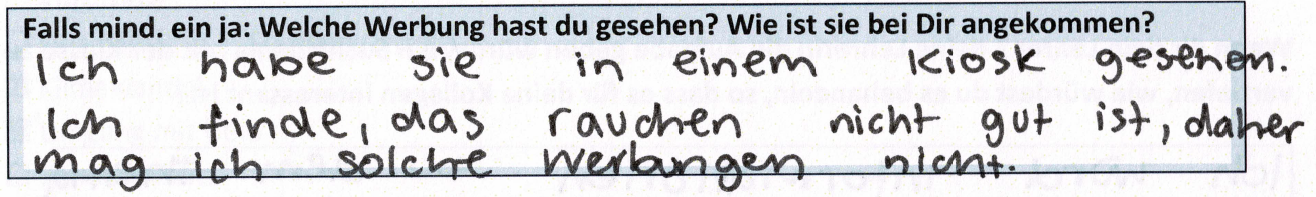 Falls mind. ein ja: Welche Werbung hast du gesehen? Wie ist sie bei Dir angekommen?
Ich habe sie in einem Kiosk gesehen.
Ich finde, das rauchen nicht gut ist, daher
mag ich solche Werbungen nicht.